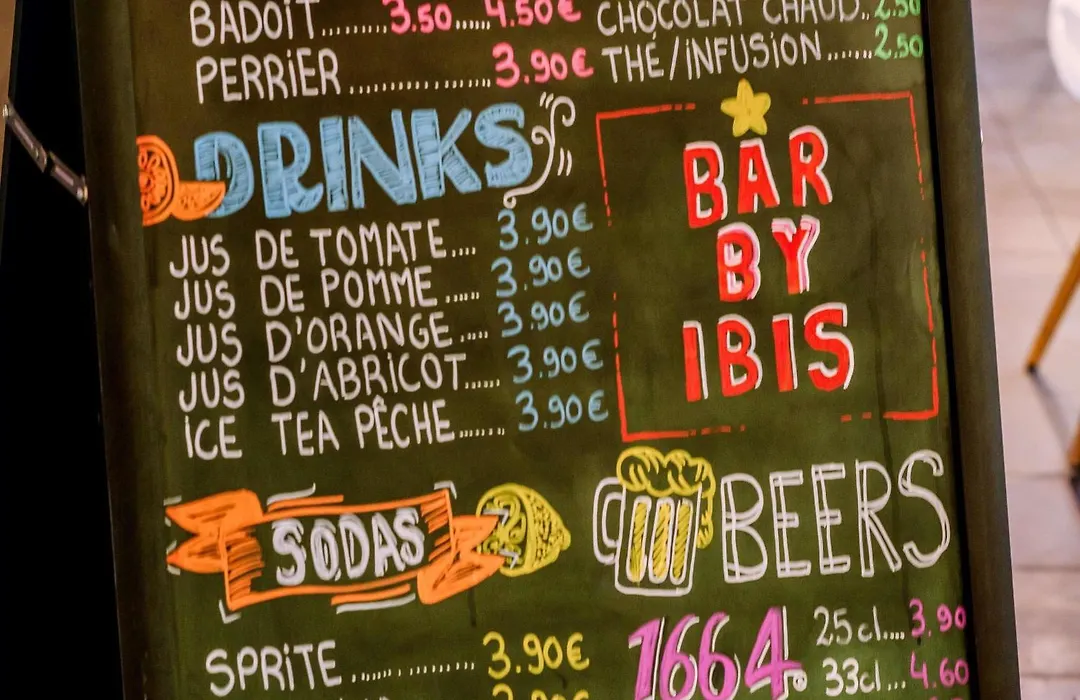 BADOIT.........3.50......4.50€
PERRIER ................3.90€
DRINKS
JUS DE TOMATE.... 3.90€
JUS DE POMME ..... 3.90€
JUS D'ORANGE ..... 3.90€
JUS D'ABRICOT...... 3.90€
ICE TEA PÊCHE........ 3.90€
SODAS
SPRITE .............. 3.90€
3.90€
CHOCOLAT CHAUD..2.50
THÉ/INFUSION.......2.50
BAR
BY
IBIS
BEERS
1664. 25cl....3.90
33cl...4.60